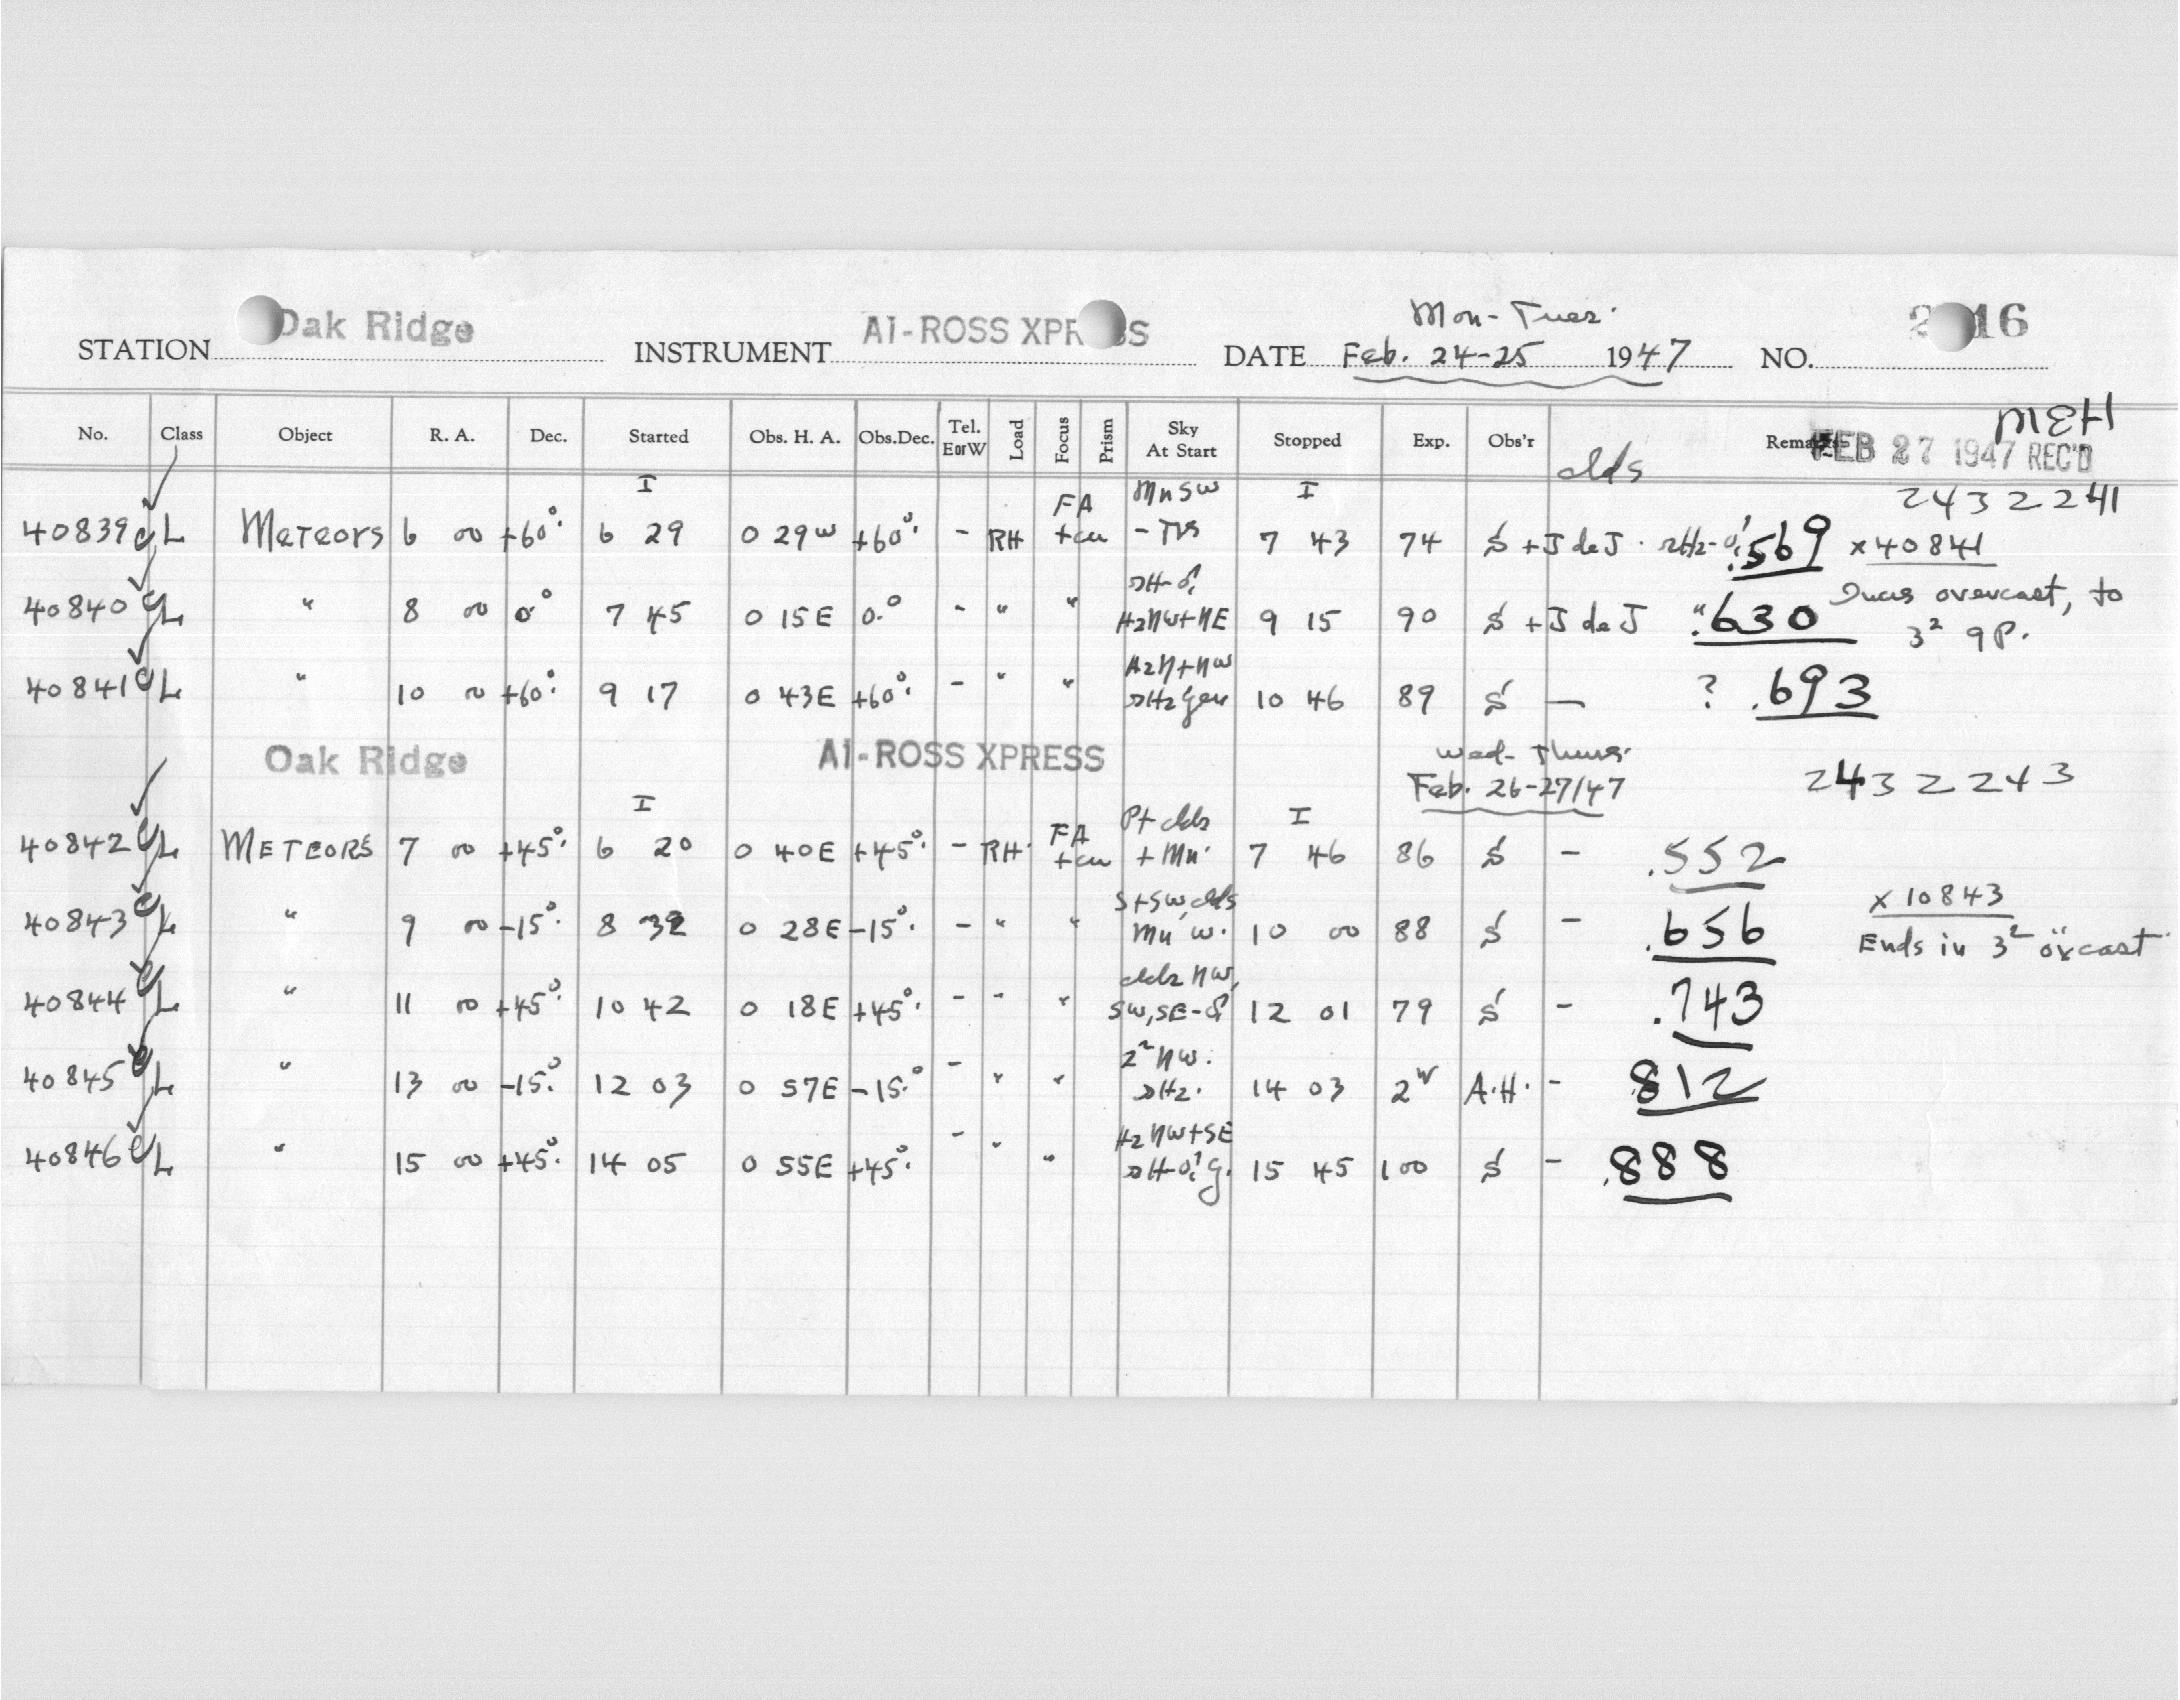 Mon-Tues.
STATION Oak Ridge INSTRUMENT AI-ROSS XPR SS DATE Feb. 24-25 1947 NO. 2 16
MEH
No. Class Object R. A. Dec. Started Obs. H. A. Obs.Dec. Tel. E or W Load Focus Prism Sky At Start Stopped Exp. Obs'r Remarks FEB 27 1947 REC'D
clds
I FA Mn SW I 2432241
40839 L METEORS 6 00 +60°. 6 29 0 29W +60°. - RH +cu 7 43 74 S +J de J. .569 x40841
40840 L " 8 00 0° 7 45 0 15E 0.° - " " H2NW+NE 9 15 90 S +J de J " .630 overcast, to
3² 9P.
40841 L " 10 00 +60°. 9 17 0 43E +60°. - " " H2N+NW 10 46 89 S — ? .693
Oak Ridge AI-ROSS XPRESS Wed-Thurs. Feb. 26-27/47 2432243
I FA Pt clds I
40842 L METEORS 7 00 +45°. 6 20 0 40E +45°. - RH. +cu +Mn. 7 46 86 S - .552
S+SW, clds x 10843
40843 L " 9 00 -15°. 8 32 0 28E -15°. - " " Mn W. 10 00 88 S - .656 Ends in 3²
clds NW,
40844 L " 11 00 +45°. 10 42 0 18E +45°. - " " SW, SE- 12 01 79 S - .743
2² NW.
40845 L " 13 00 -15°. 12 03 0 57E -15.° - " " 14 03 2 A.H. - .812
H2 NW+SE
40846 L " 15 00 +45°. 14 05 0 55E +45°. - " " 15 45 100 S - .888